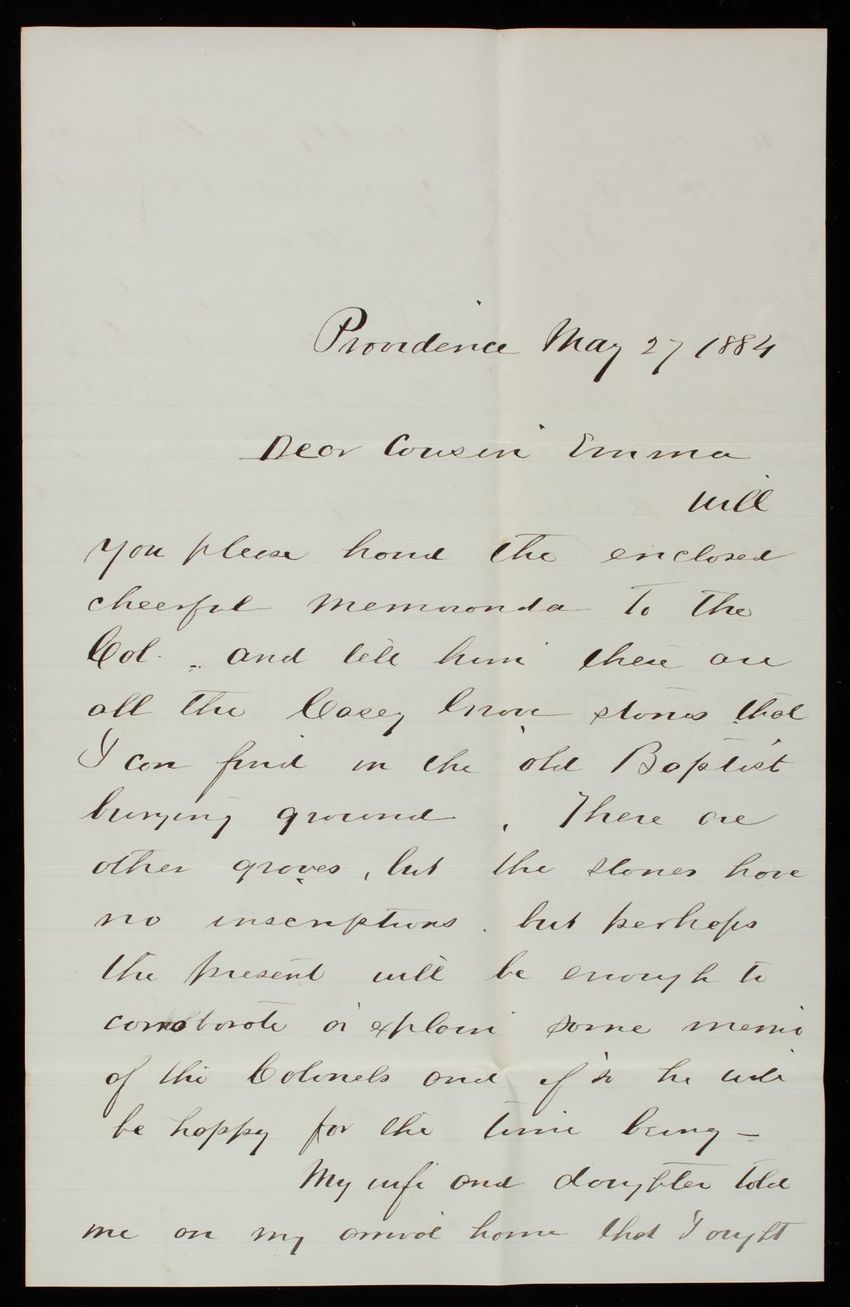 Providence May 27 1884
Dear Cousin Emma
Will
you please hand the enclosed
cheerful memoranda to the
Col. and tell him these are
all the Casey Grave stones that
I can find in the old Baptist
burying ground. There are
other graves, but the stones have
no inscriptions. but perhaps
the present will be enough to
corroborate or explain some memo
of the Colonels and if so he will
be happy for the time being -
My wife and daughter told
me on my arrival home that I ought